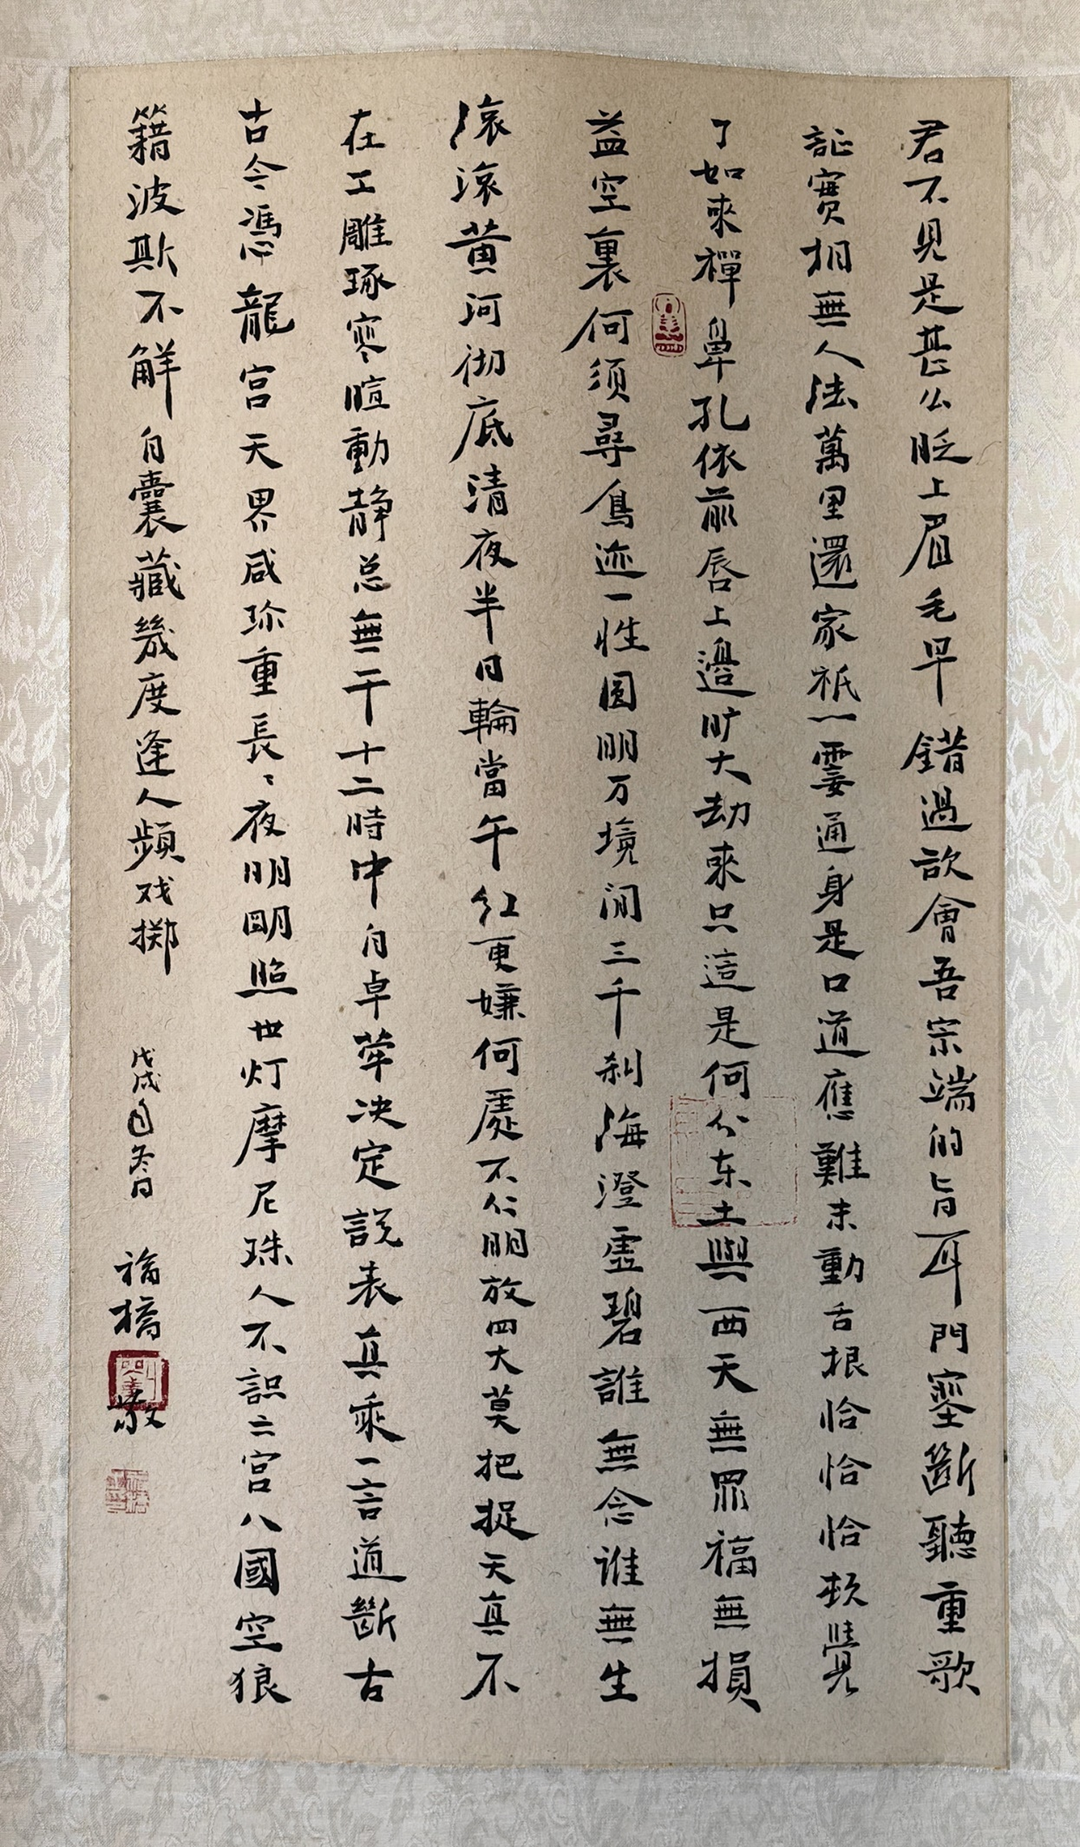 君不見是甚么眨上眉毛早錯過欲會吾宗端的旨耳門塞斷聽重歌
証實相無人法萬里還家祇一霎通身是口道應難未動舌根恰恰恰頓覺
了如來禪鼻孔依前唇上邊旷大劫來只這是何分东土與西天無罪福無損
益空裏何須尋鳥迹一性圆明万境閒三千刹海澄虛碧誰無念谁無生
滾滾黄河彻底清夜半日輪當午红更嫌何處不分明放四大莫把捉天真不
在工雕琢寒暄動静总無干十二時中自卓犖决定説表真乘一言道斷古
古今憑龍宫天界咸珍重長〻夜明明照世灯摩尼珠人不識六宫八國空狼
籍波斯不解自囊藏幾度逢人頻戏掷
戊戌冬日
福橋
敬